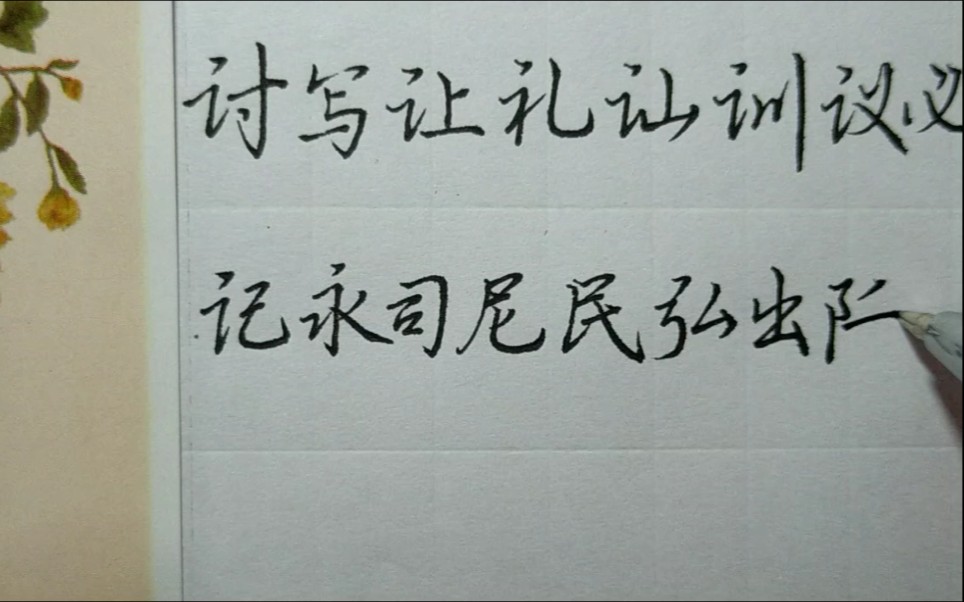 讨写让礼讪训议必
记永司尼民弘出